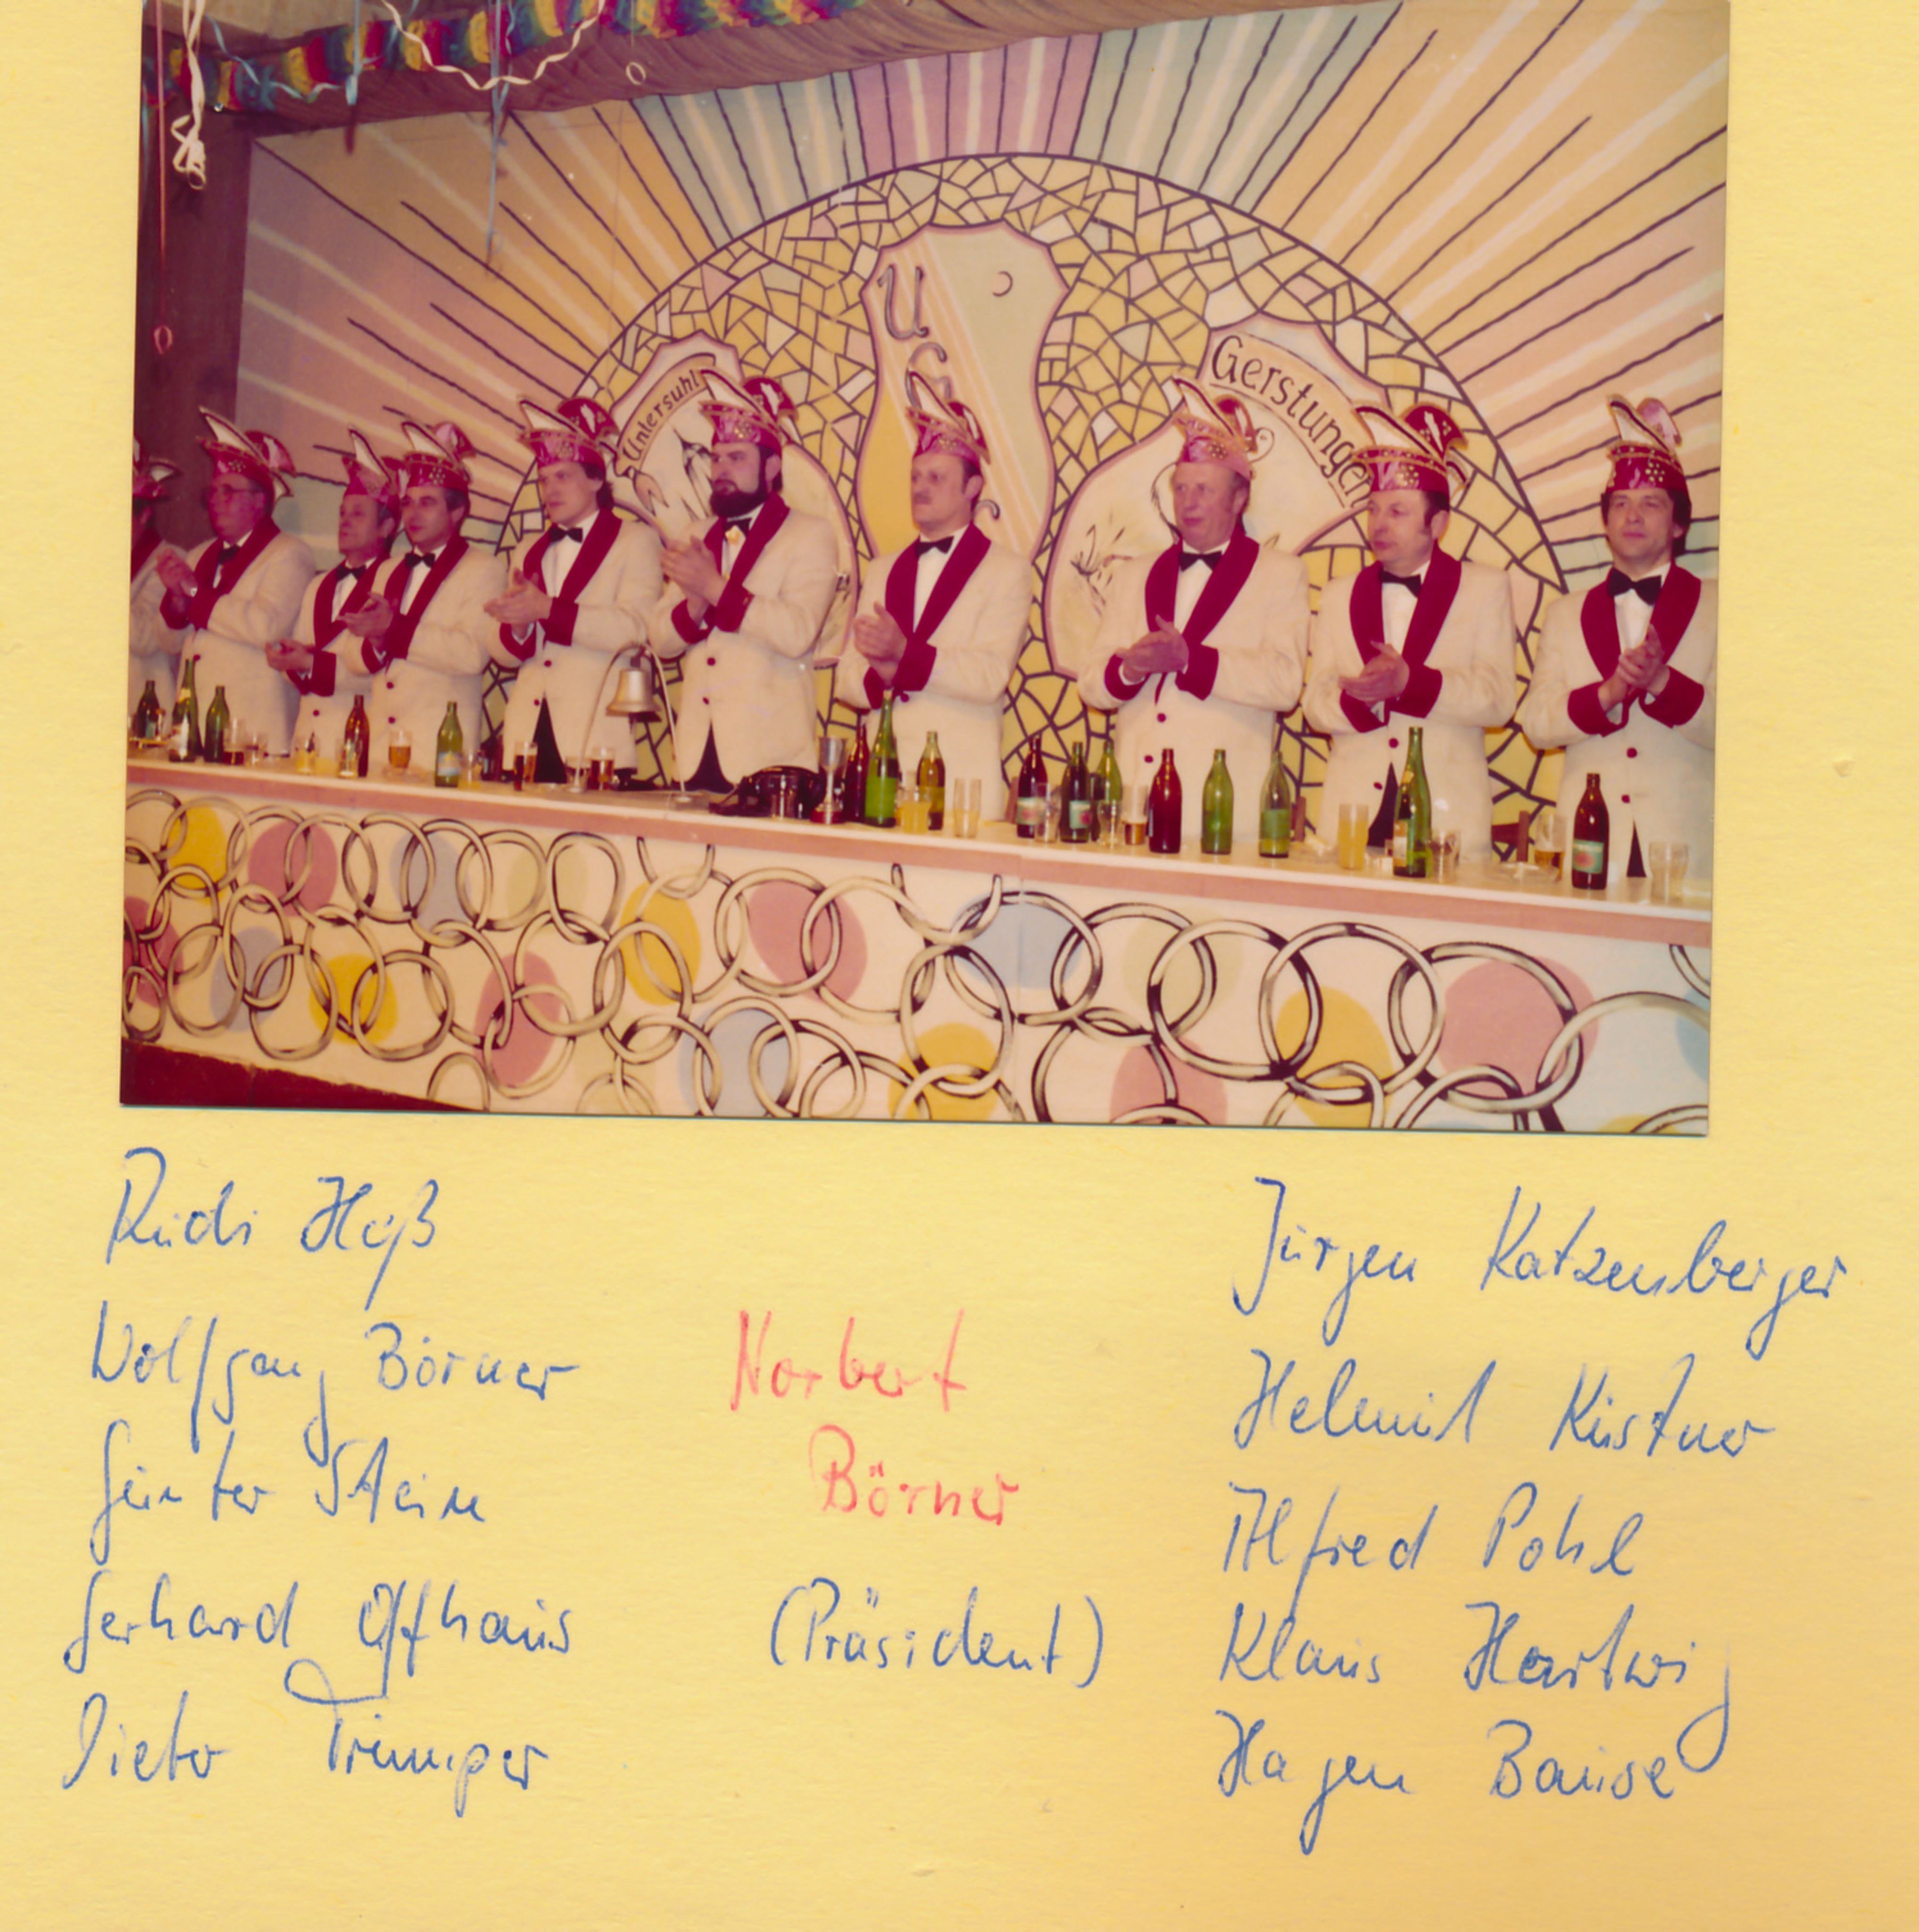 U
G
Untersuhl
Gerstungen
Rudi Heß
Wolfgang Börner
Günter Stein
Gerhard
Dieter Trümper
Norbert
Börner
(Präsident)
Jürgen Katzenberger
Helmut Küstner
Alfred Pohl
Klaus Hartwig
Hagen Bause